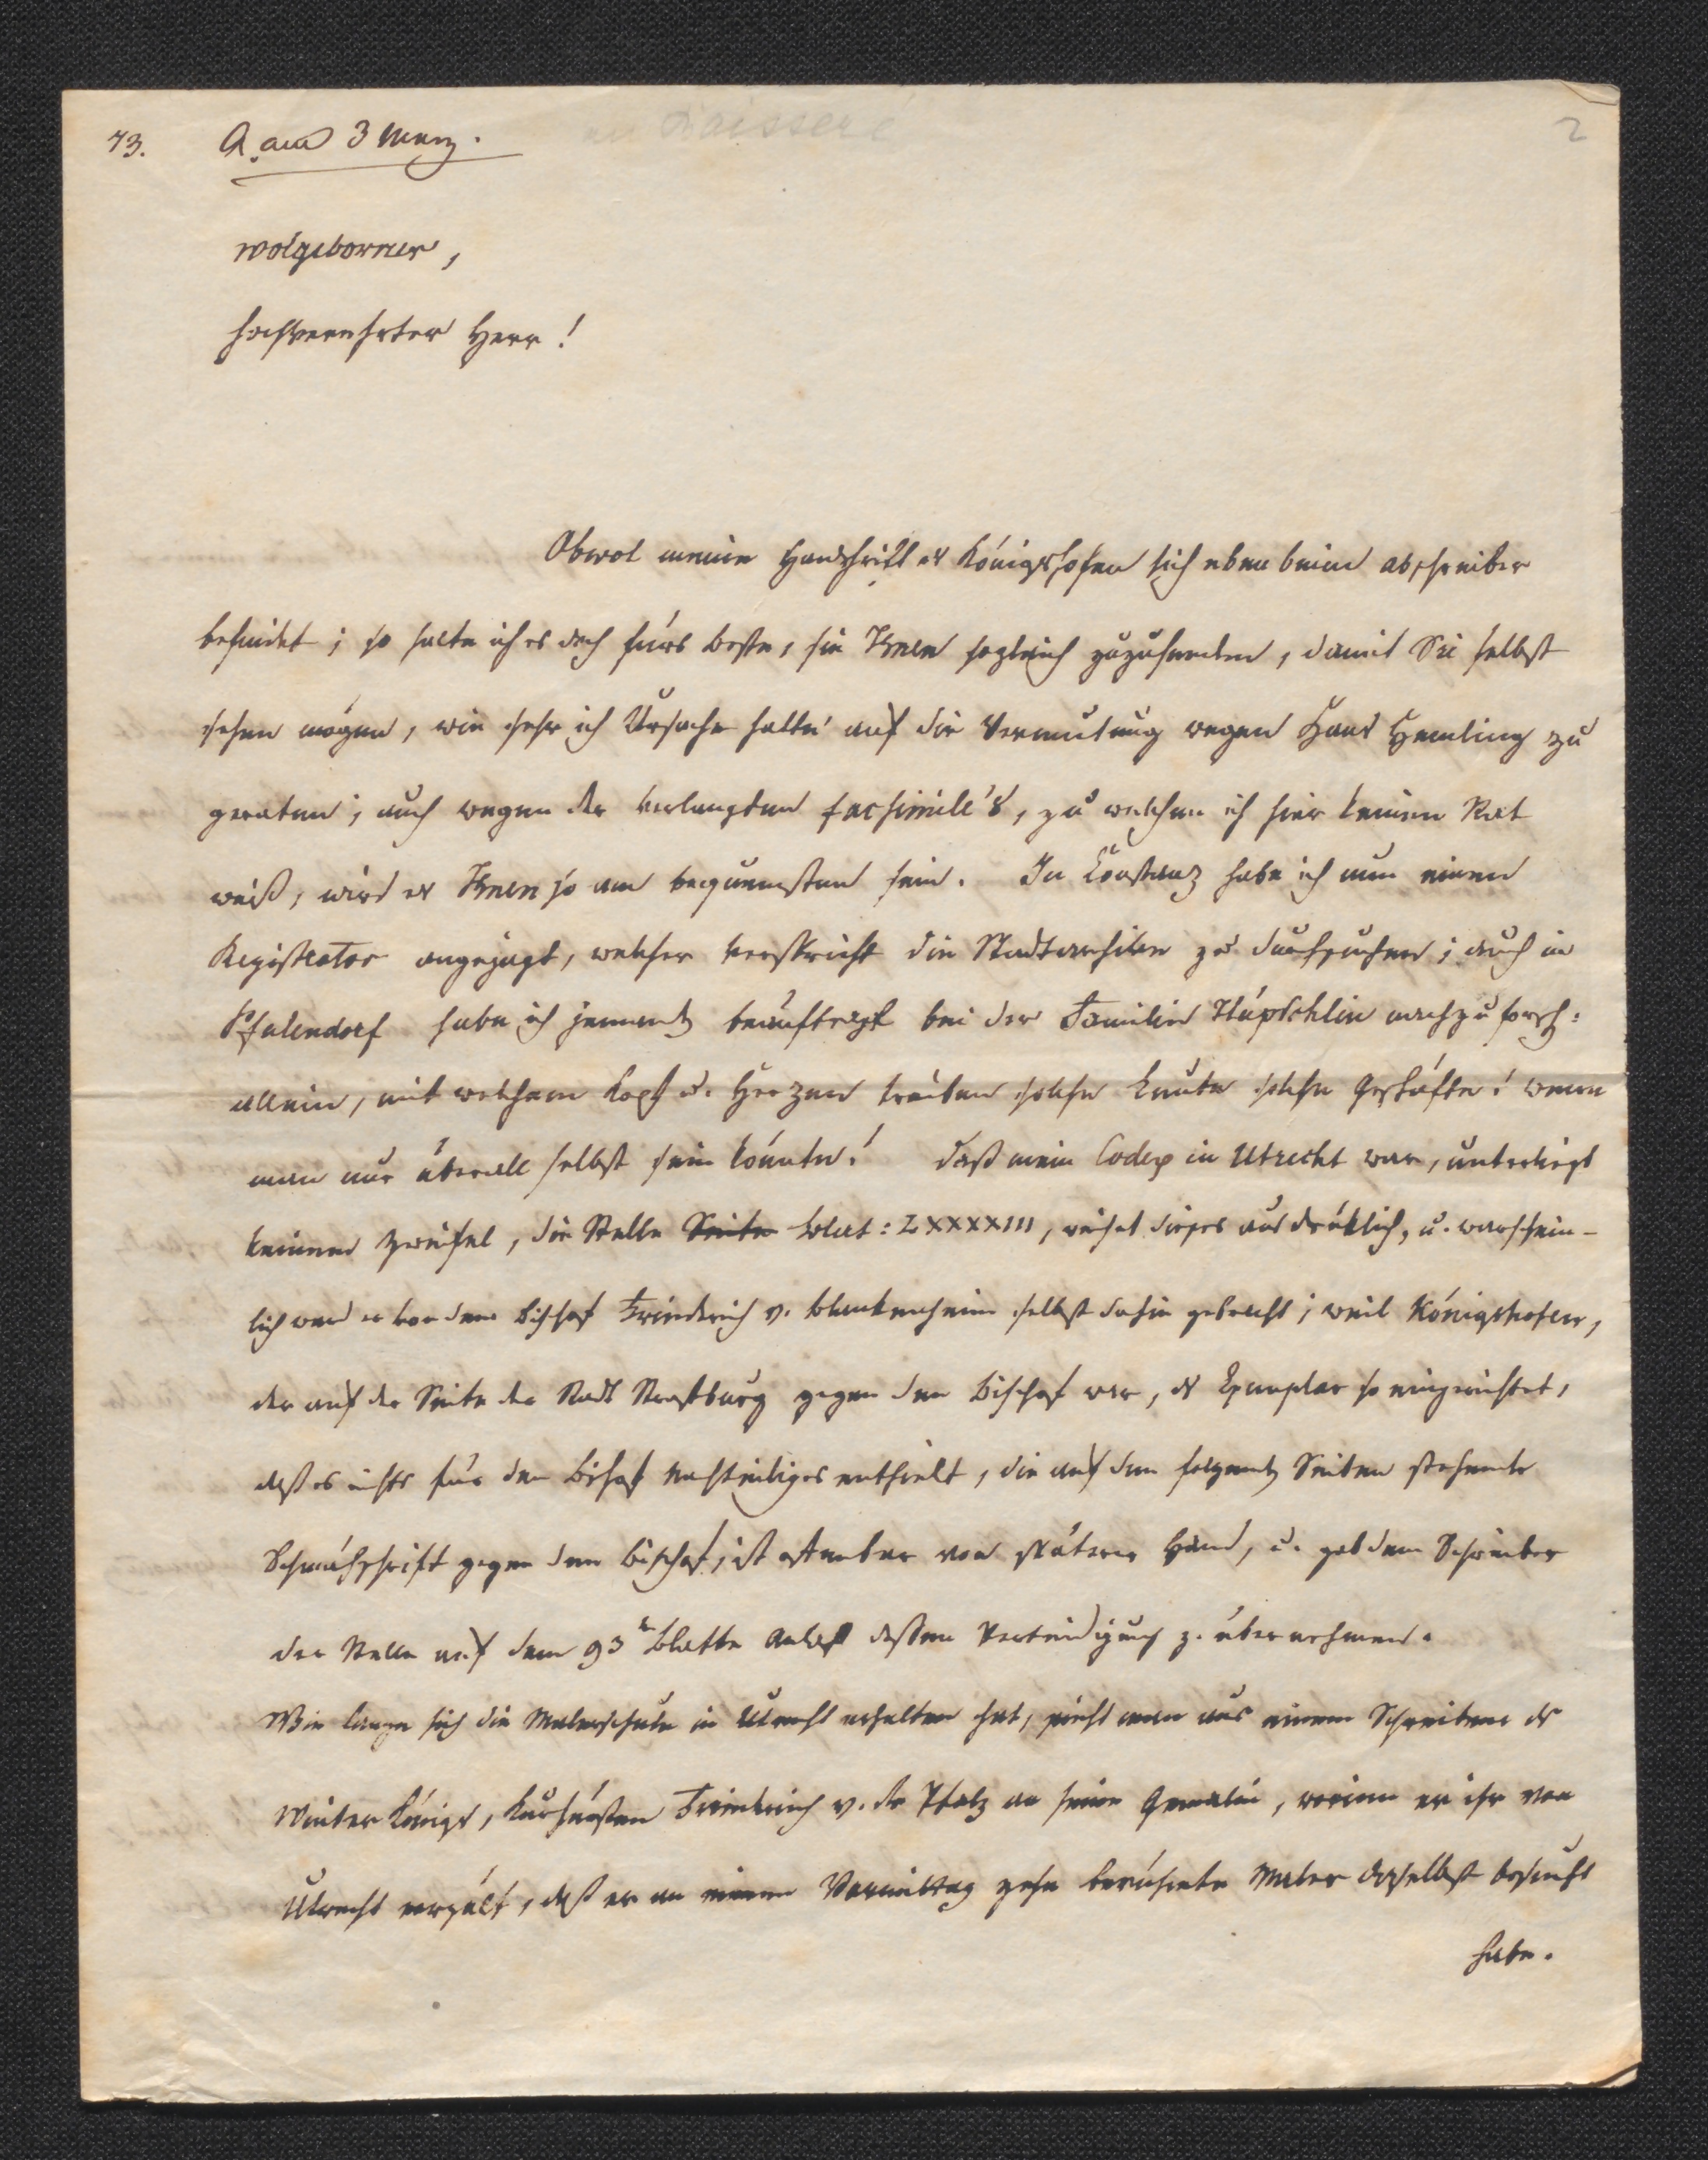 73. A. am 3 Merz.
an Boisserée
2
Wolgeborner,
hochverehrter Herr!
Obwol meine Handschrift es Königshofen sich eben beim abschreiber
befindet; so halte ich es doch fürs beste, sie Ihnen sogleich zuzusenden, damit Sie selbst
sehen mögen, wie sehr ich Ursache hatte auf die Vermutung wegen Hans Hemling zu
geraten; auch wegen der verlangten facsimile's, zu welchen ich hier keinen Rat
weiß, wird es Ihnen so am bequemsten sein. In Constanz habe ich nun einen
Registrator angejagt, welcher verspricht die Stadtarchive zu durchsuchen; auch in
Pfulendorf habe ich jemand beauftragt bei der Familie Stüpschlin nachzuforsch:
allein, mit welchem Kopf u. Herzen treiben solche Leute solche Geschäfte! wenn
man nur überall selbst sein könnte! Daß mein Codex in Utrecht war, unterliegt
keinem Zweifel, die Stelle Seite Blat: LXXXXIII, weiset dieses ausdrüklich, u. warschein-
lich ward er von dem Bischof Friederich v. Blankenheim selbst dahin gebracht; weil Königshofen,
der auf der Seite der Stadt Straßburg gegen den Bischof war, ds Exemplar so eingerichtet,
daß es nichts für den Bischof nachteiliges enthielt, die auf den folgend. Seiten stehende
Schmähschrift gegen den Bischof, ist offenbar von späterer Hand, u. gab dem Schreiber
der Stelle auf dem 93n Blatte Anlaß dessen Verteidigung z. übernehmen.
Wie lange sich die Malerschule in Utrecht erhalten hat, sieht man aus einem Schreiben ds
Winter Königs, Kurfürsten Friederich v. der Pfalz an seine Gemalin, worinn er ihr von
Utrecht erzält, daß er an einem Vormittag zehn berühmte Maler daselbst besucht
habe.